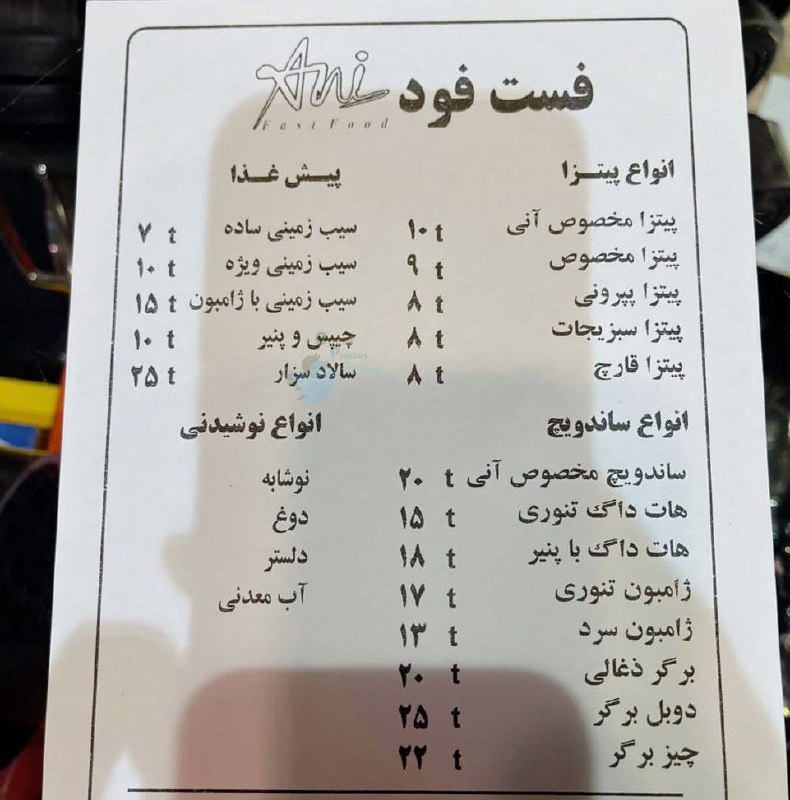 فست فود Ani
Fast Food
انواع پیتزا
پیتزا مخصوص آنی ۱۰ t
پیتزا مخصوص ۹ t
پیتزا پپرونی ۸ t
پیتزا سبزیجات ۸ t
پیتزا قارچ ۸ t
پیش غذا
سیب زمینی ساده ۷ t
سیب زمینی ویژه ۱۰ t
سیب زمینی با ژامبون ۱۵ t
چیپس و پنیر ۱۰ t
سالاد سزار ۲۵ t
انواع ساندویچ
ساندویچ مخصوص آنی ۲۰ t
هات داگ تنوری ۱۵ t
هات داگ با پنیر ۱۸ t
ژامبون تنوری ۱۷ t
ژامبون سرد ۱۳ t
برگر ذغالی ۲۰ t
دوبل برگر ۲۵ t
چیز برگر ۲۲ t
انواع نوشیدنی
نوشابه
دوغ
دلستر
آب معدنی
Persian